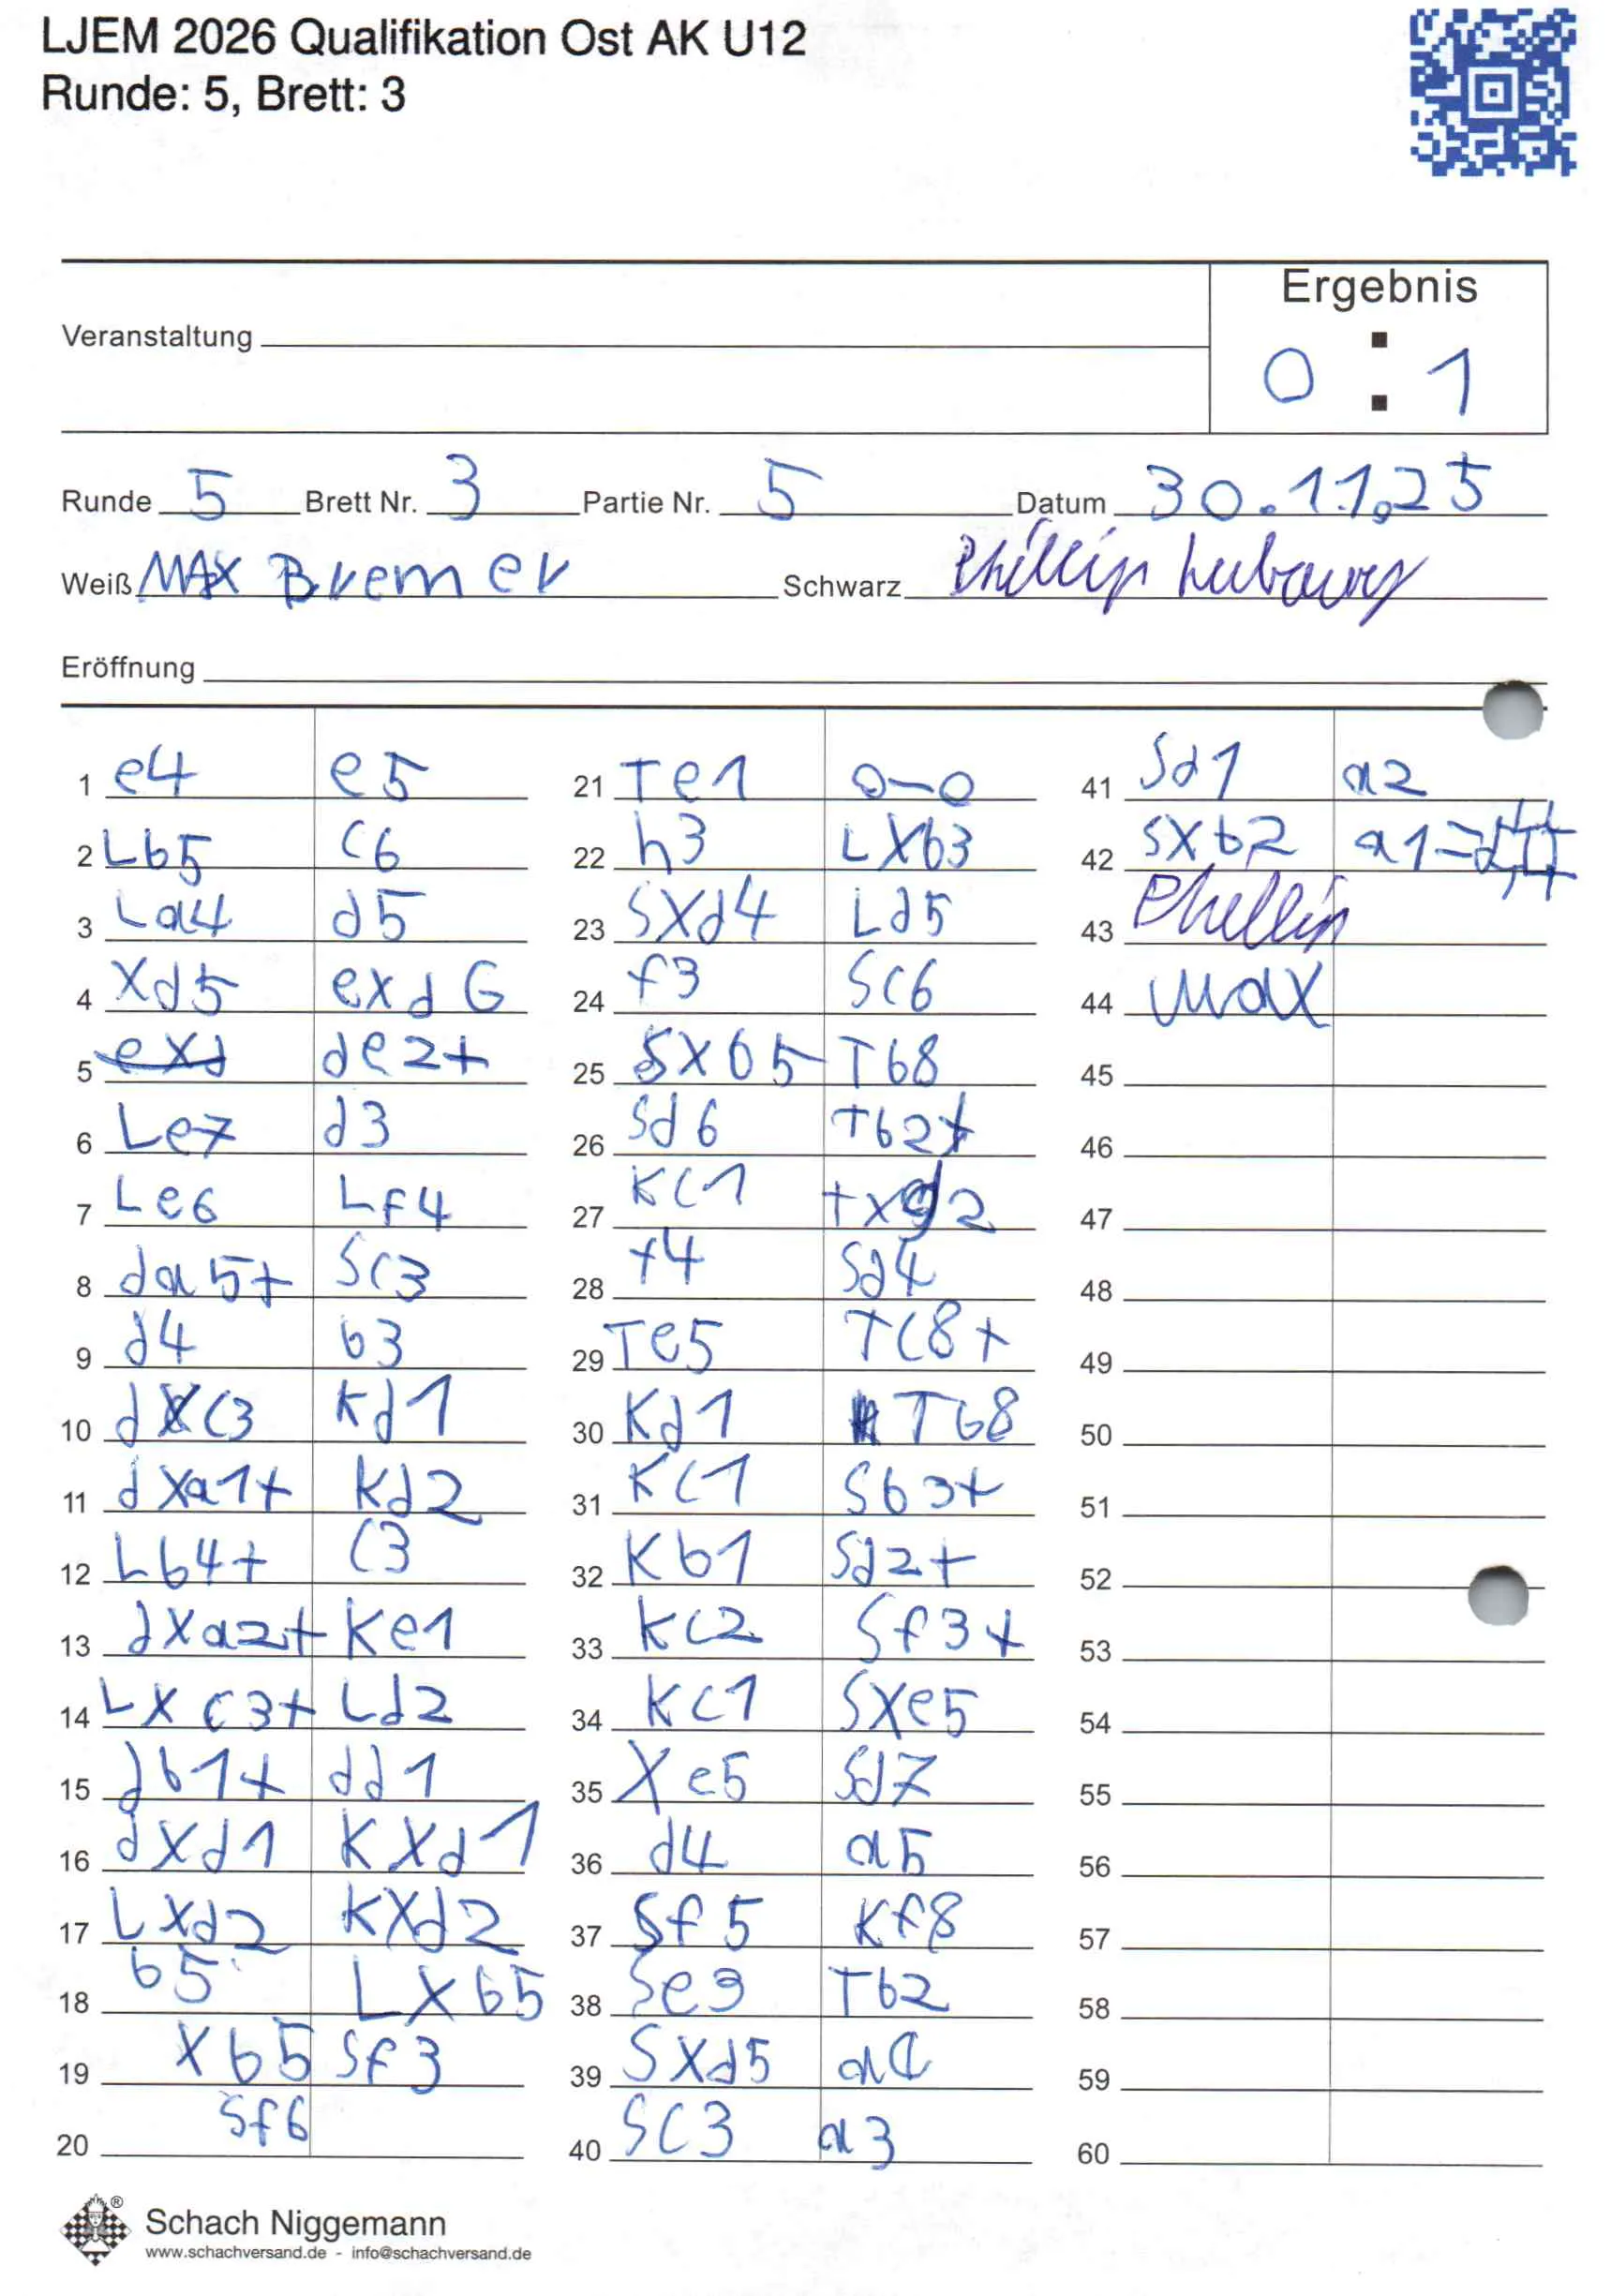 LJEM 2026 Qualifikation Ost AK U12
Runde: 5, Brett: 3
Ergebnis
Veranstaltung
0 : 1
Runde 5 Brett Nr. 3 Partie Nr. 5 Datum 30.11.25
Weiß MAX Bremer Schwarz Phillip
Eröffnung
1 e4 e5
2 Lb5 c6
3 La4 d5
4 Xd5 exd6
5 exd de2+
6 Le7 d3
7 Le6 Lf4
8 da5+ Sc3
9 d4 b3
10 dXC3 Kd1
11 dXa1+ Kd2
12 Lb4+ C3
13 dXa2+ Ke1
14 LXC3+ Ld2
15 db1+ dd1
16 dXd1 KXd1
17 LXd2 KXd2
18 b5 LXb5
19 Xb5 Sf3
20 Sf6
21 Te1 0-0
22 h3 LXb3
23 SXd4 Ld5
24 f3 Sc6
25 SXb5 Tb8
26 Sd6 Tb2+
27 KC1 TXg2
28 f4 Sd4
29 Te5 TC8+
30 Kd1 Tb8
31 KC1 Sb3+
32 Kb1 Sd2+
33 KC2 Sf3+
34 KC1 SXe5
35 Xe5 Sd7
36 d4 a5
37 Sf5 Kf8
38 Se3 Tb2
39 SXd5 a4
40 SC3 a3
41 Sd1 a2
42 SXb2 a1=d#
43 Phillip
44 Max
45
46
47
48
49
50
51
52
53
54
55
56
57
58
59
60
Schach Niggemann
www.schachversand.de - info@schachversand.de